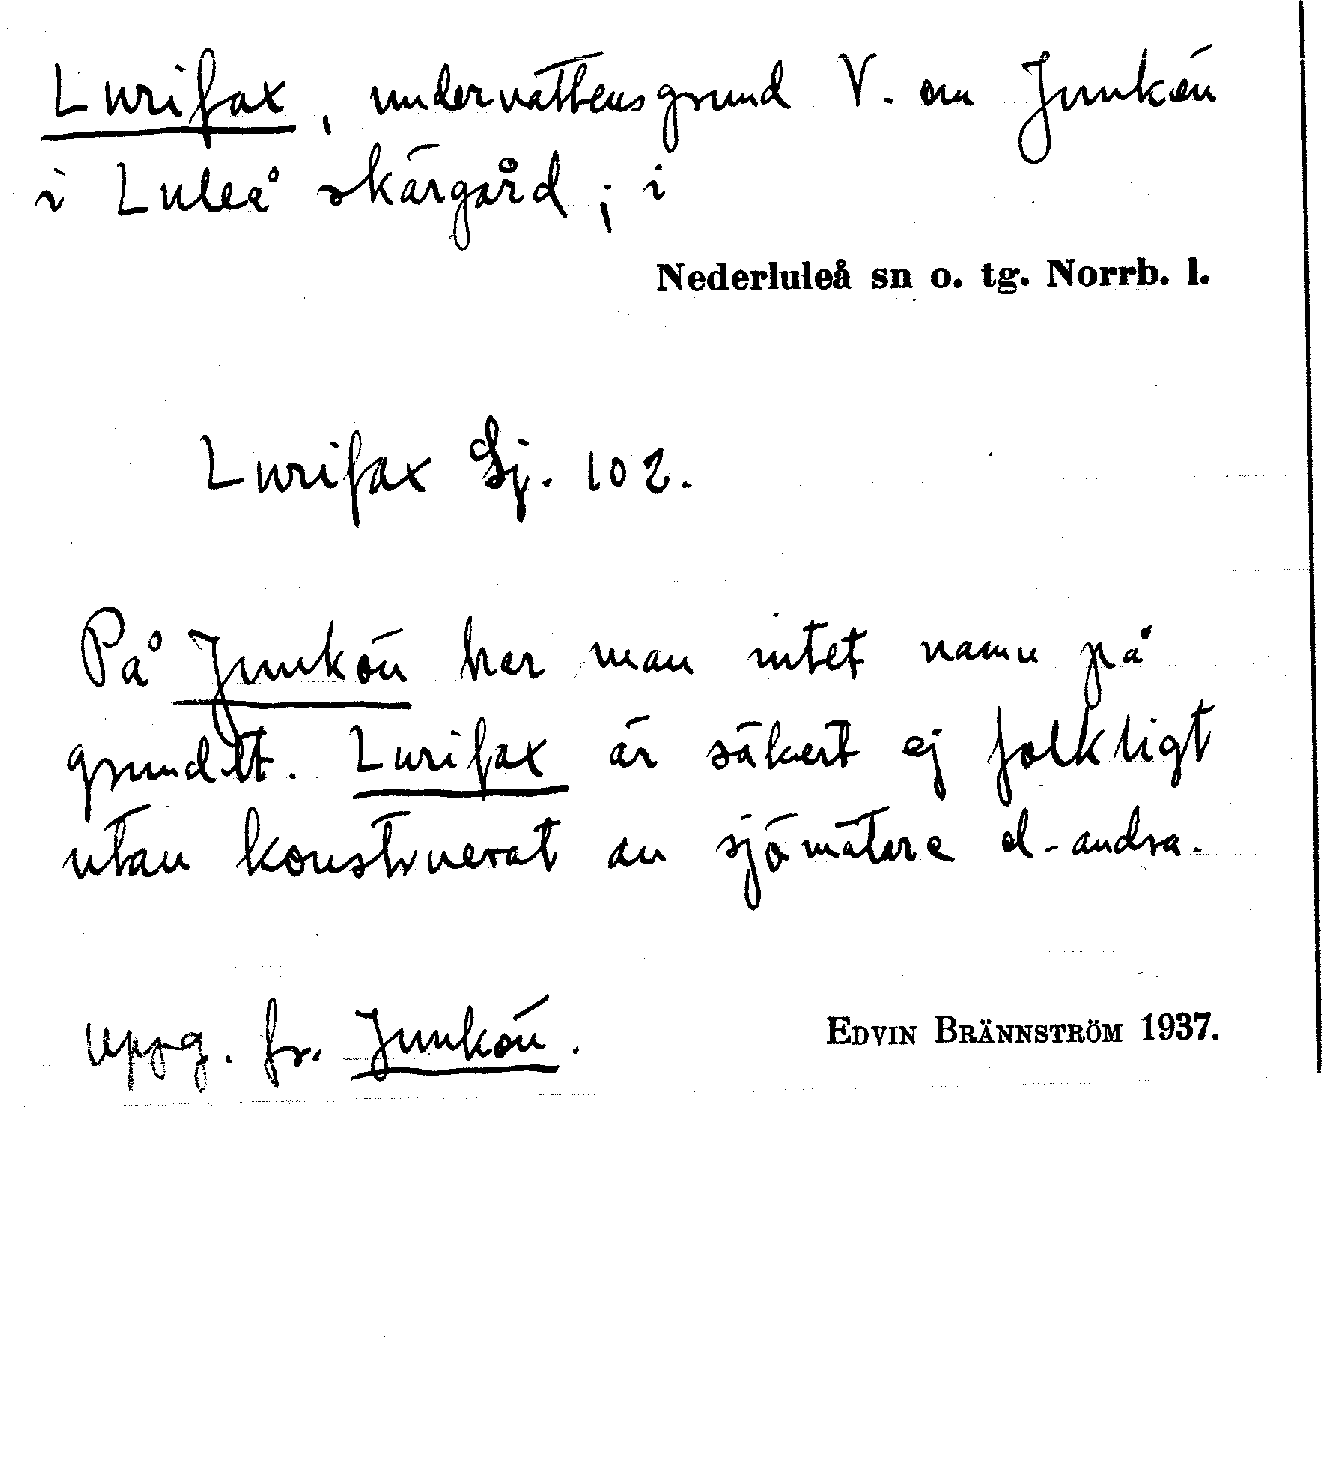 Lurifax, undervattensgrund V. om Junkön
i Luleå skärgård; i
Nederluleå sn o. tg. Norrb. l.
Lurifax Sj. 102.
På Junkön har man intet namn på
grundet. Lurifax är säkert ej folkligt
utan konstruerat av sjömätare el. andra.
Uppg. fr. Junkön.
EDVIN BRÄNNSTRÖM 1937.